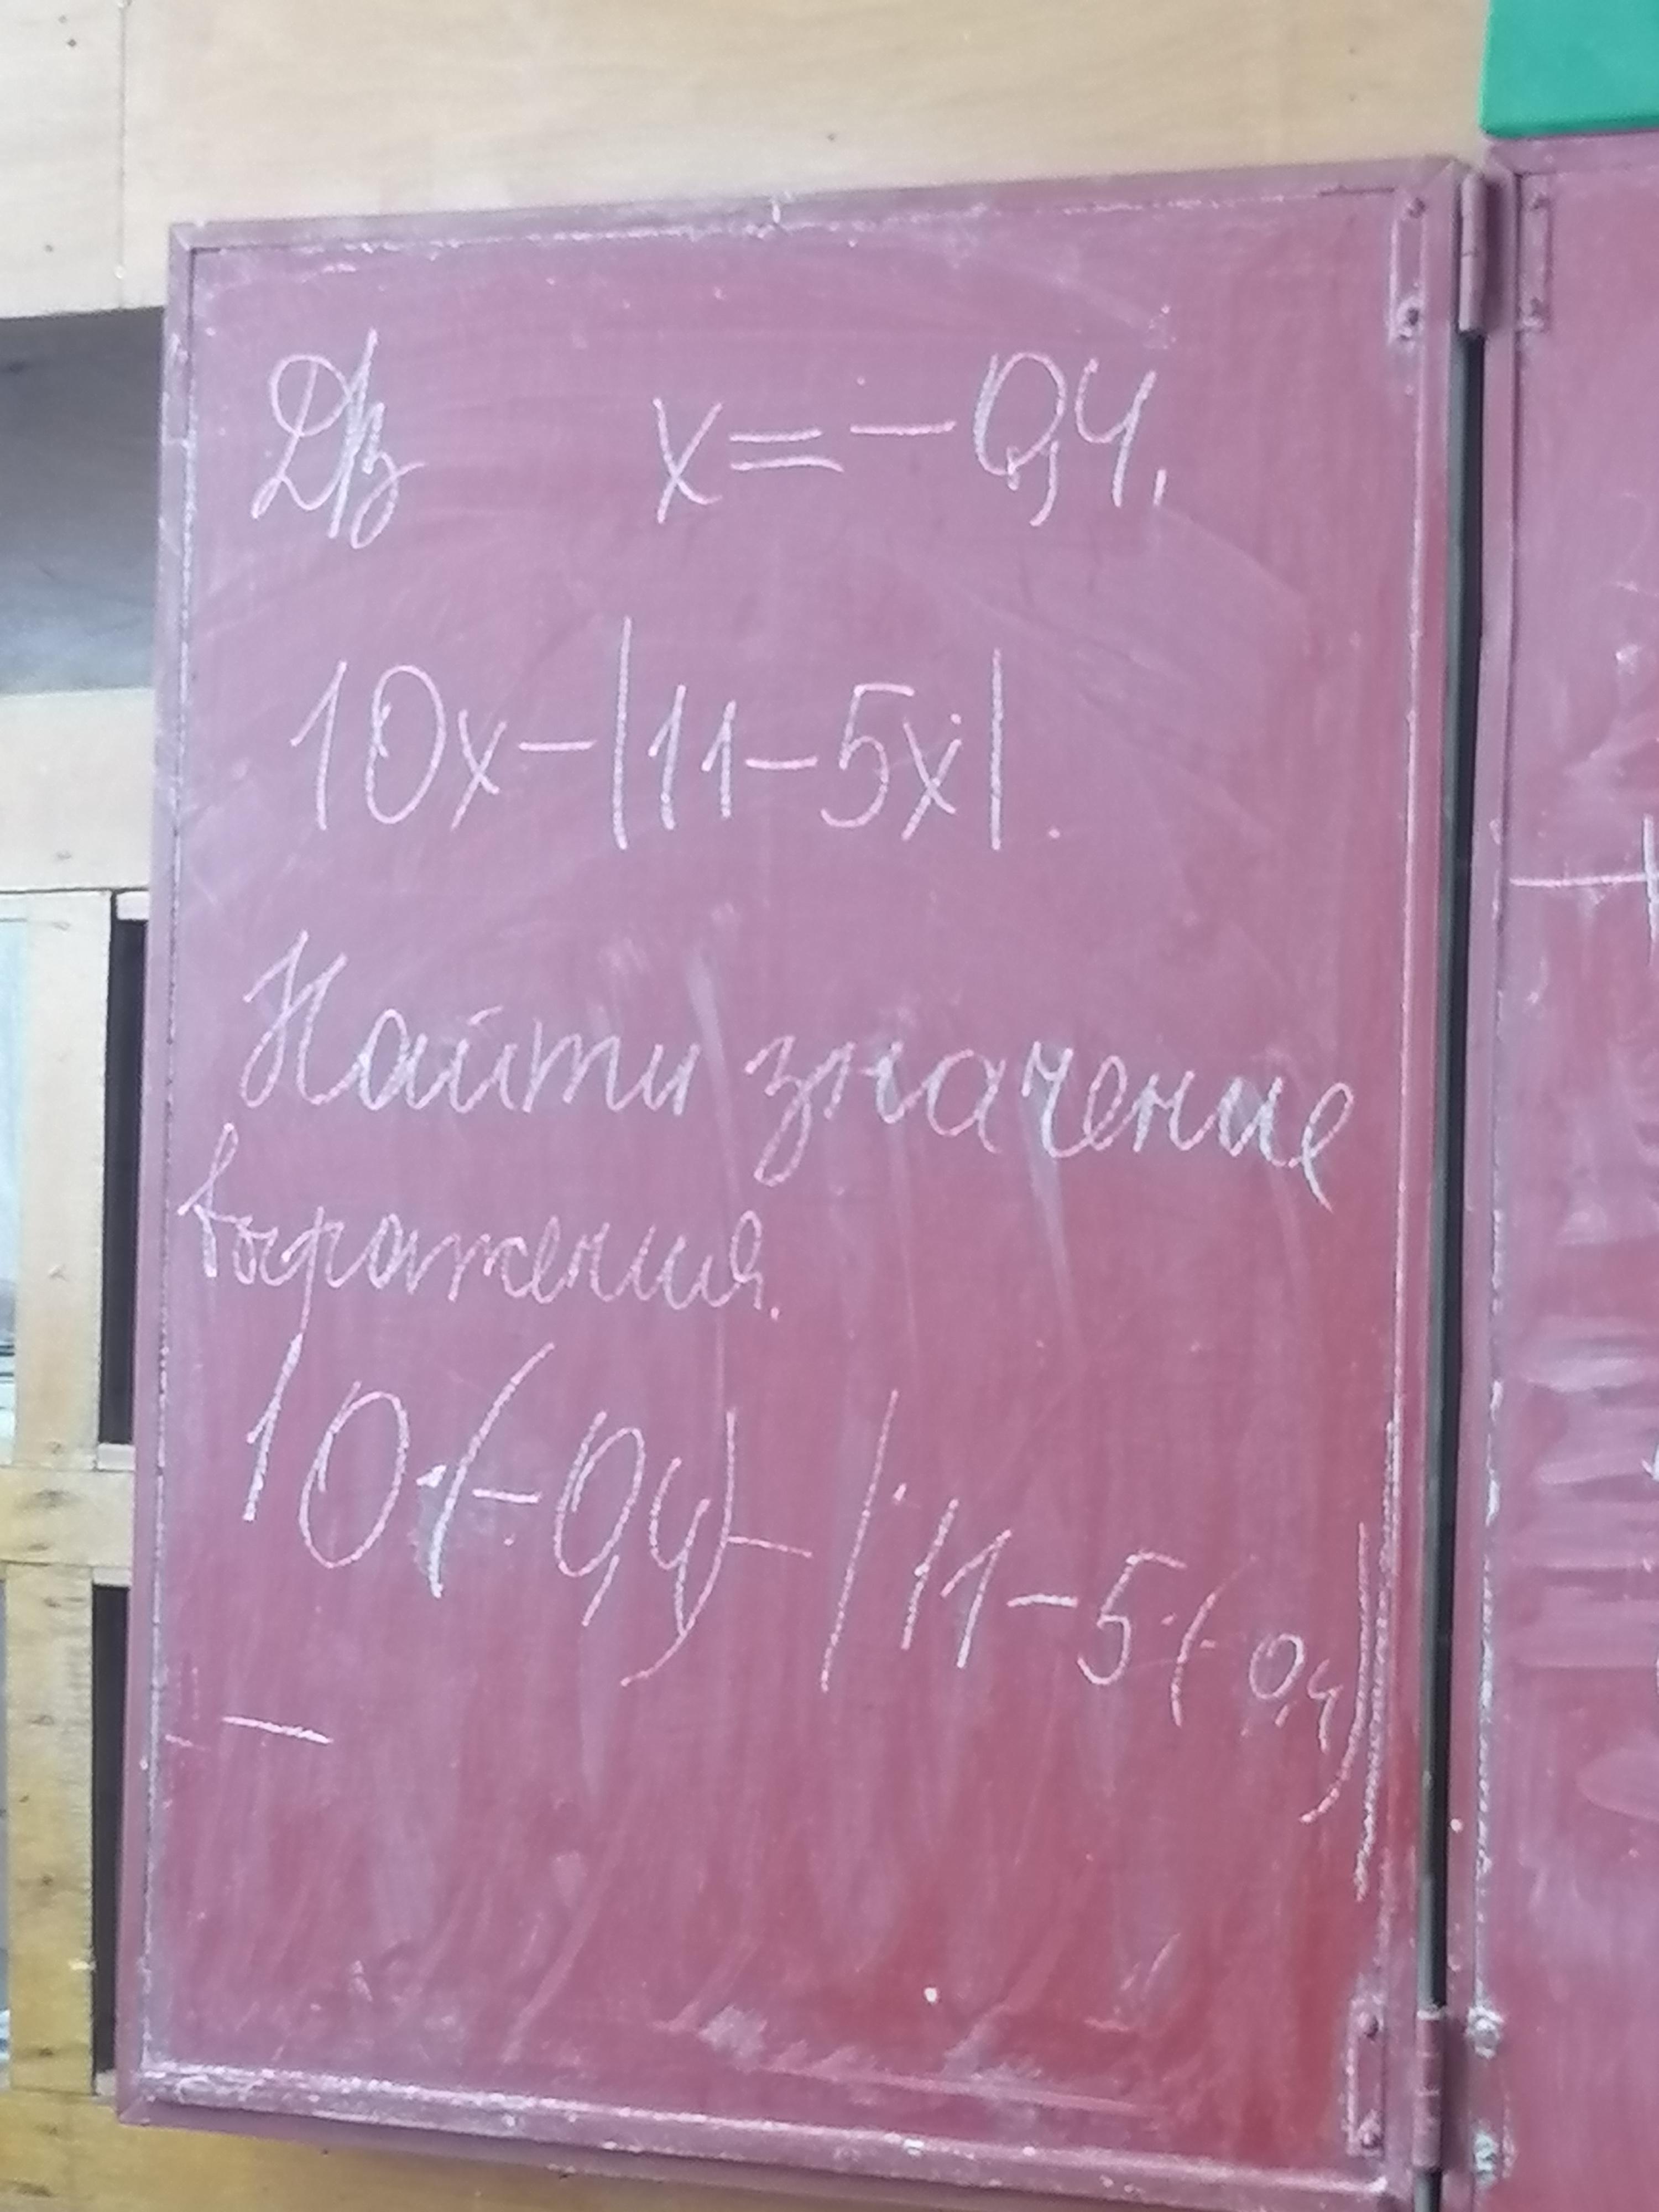 Д/з x = -0,4,
10x-|11-5x|.
Найти значение
выражения.
10·(-0,4)-|11-5·(-0,4)|
-